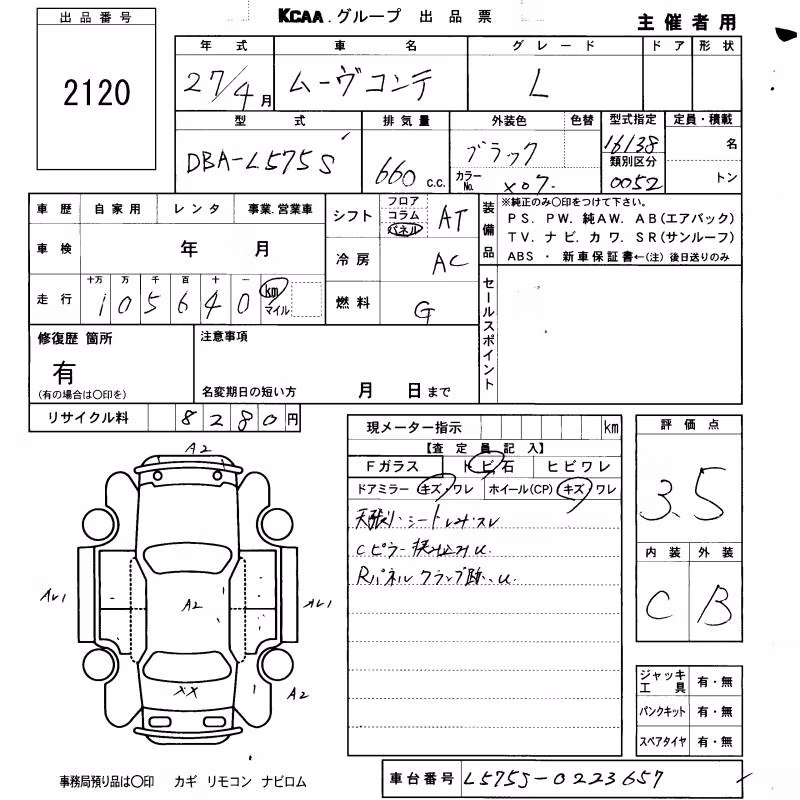 KCAA.グループ 出品票
主催者用
出品番号
2120
年式 車名 グレード ドア 形状
27/4月 ムーヴコンテ L
型式 排気量 外装色 色替 型式指定 定員・積載
DBA-L575S 660 c.c. ブラック 16138 名
カラーNo. X07. 類別区分 0052 トン
車歴 自家用 レンタ 事業.営業車
車検 年 月
走行 十万 万 千 百 十 一
1 0 5 6 4 0 km マイル
シフト フロア コラム パネル AT
冷房 AC
燃料 G
装備品
※純正のみ〇印をつけて下さい。
PS. PW. 純AW. AB(エアバック)
TV. ナビ. カワ. SR(サンルーフ)
ABS ・ 新車保証書←(注) 後日送りのみ
セールスポイント
修復歴 箇所
有
(有の場合は〇印を)
注意事項
名変期日の短い方 月 日まで
リサイクル料 8 2 8 0 円
現メーター指示 km
【査定員記入】
Fガラス トビ石 ヒビワレ
ドアミラー キズ・ワレ ホイール(CP) キズ・ワレ
天張り・シート
Cピラー
Rパネル クランプ跡、u
評価点
3.5
内装 外装
C B
ジャッキ工具 有・無
パンクキット 有・無
スペアタイヤ 有・無
A2
A2
XX
A2
事務局預り品は〇印 カギ リモコン ナビロム
車台番号 L575S-0223657